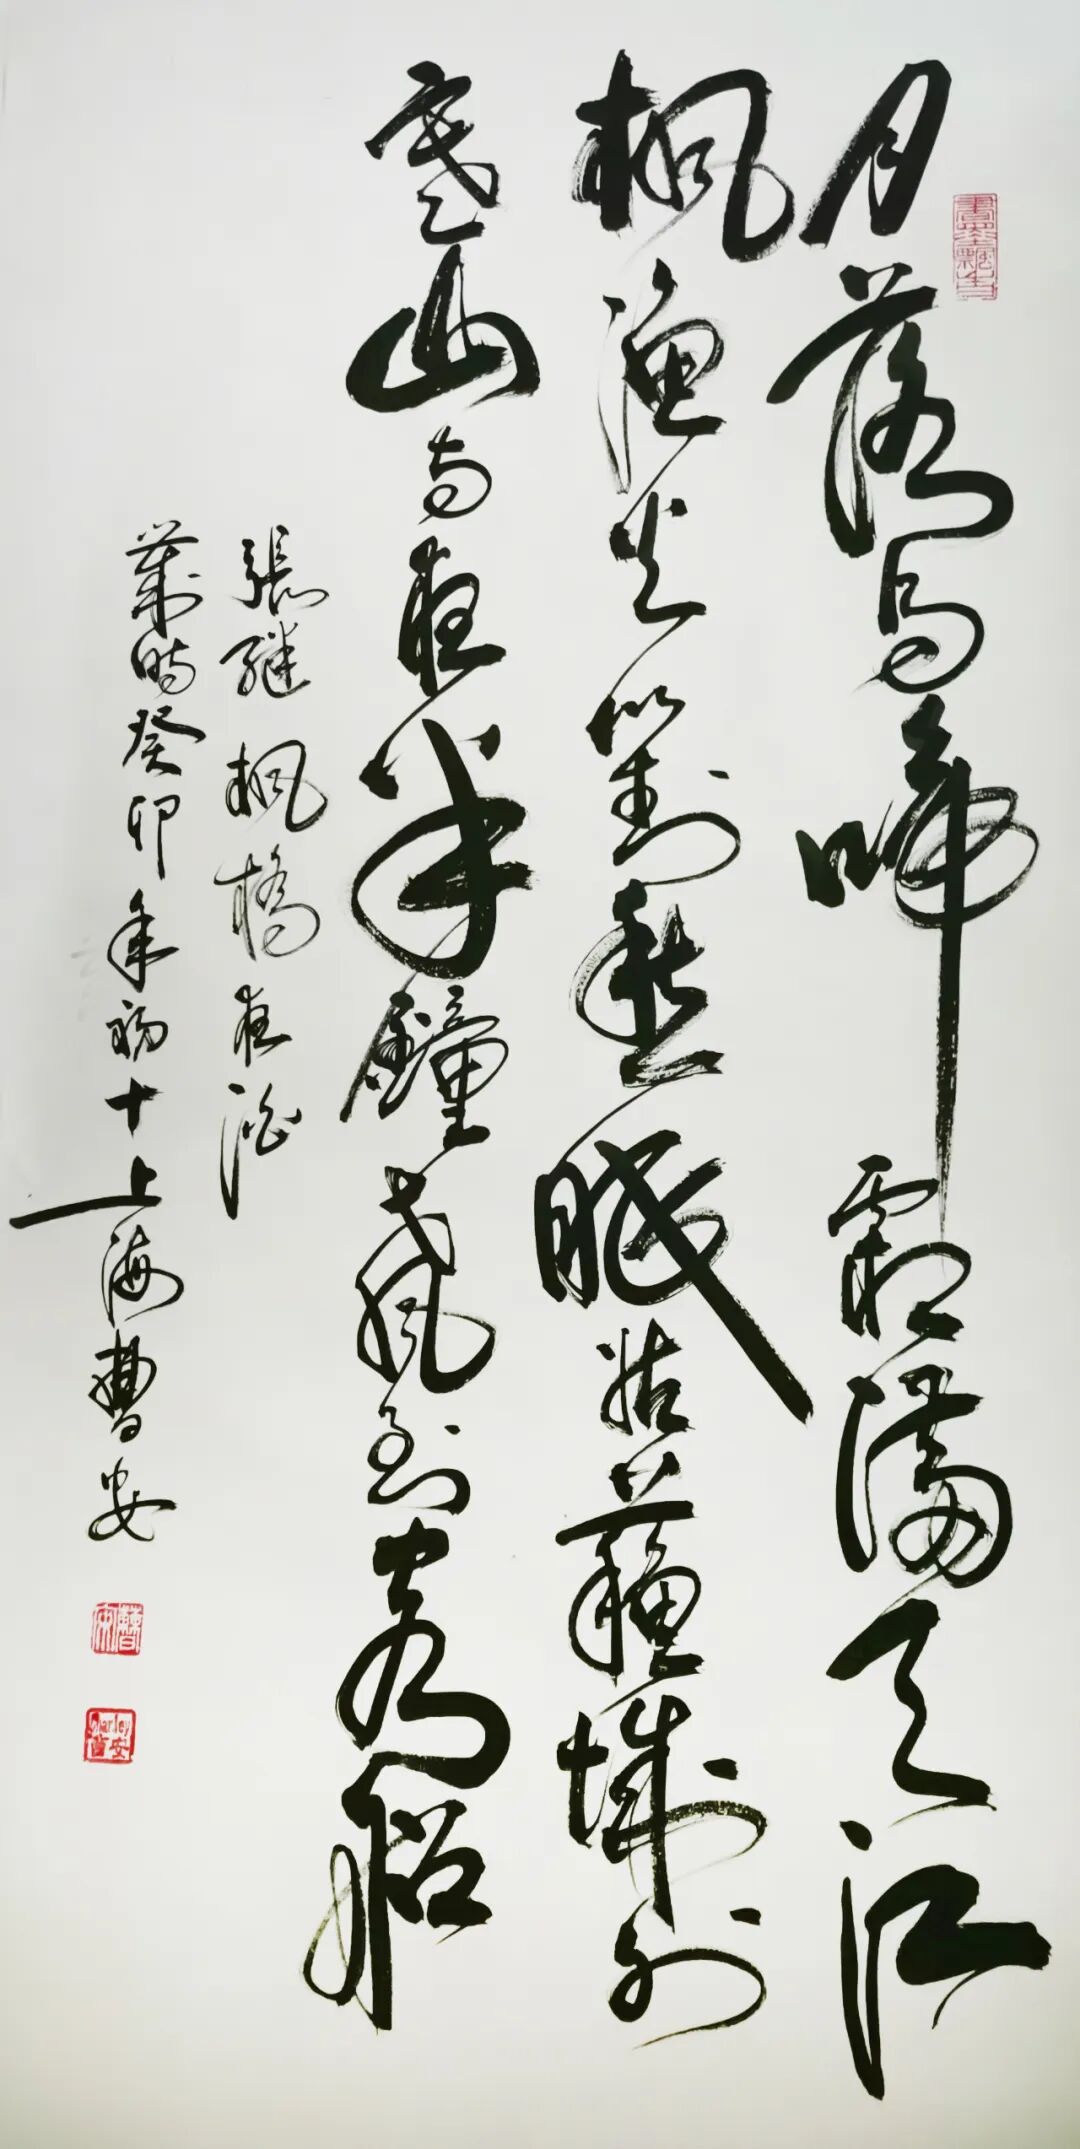 月落烏啼霜滿天江
楓漁火對愁眠姑蘇城外
寒山寺夜半鐘聲到客船
張繼楓橋夜泊
歲時癸卯年初十上海曹安
曹安